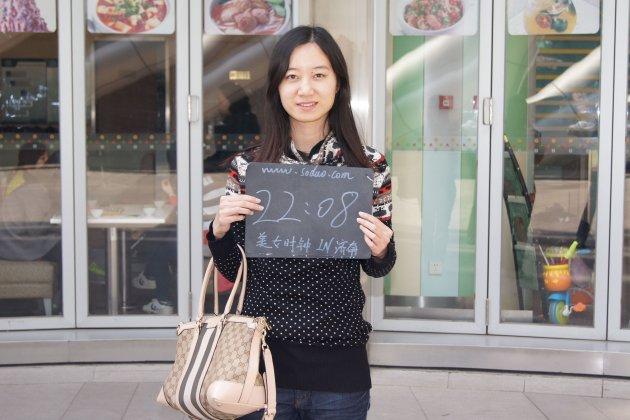 www.soduo.com
22:08
美女时钟 IN 济南